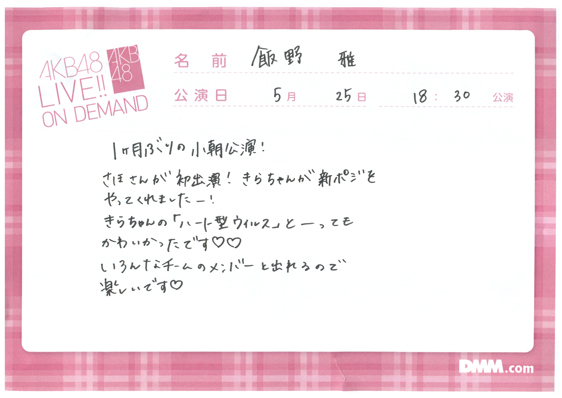 AKB48
LIVE!!
ON DEMAND
AKB
48
名前 飯野 雅
公演日 5月 25日 18:30 公演
1ヶ月ぶりの小朝公演!
さほさんが初出演! きらちゃんが新ポジを
やってくれましたー!
きらちゃんの「ハート型ウイルス」とーっても
かわいかったです♡♡
いろんなチームのメンバーと出れるので
楽しいです♡
DMM.com